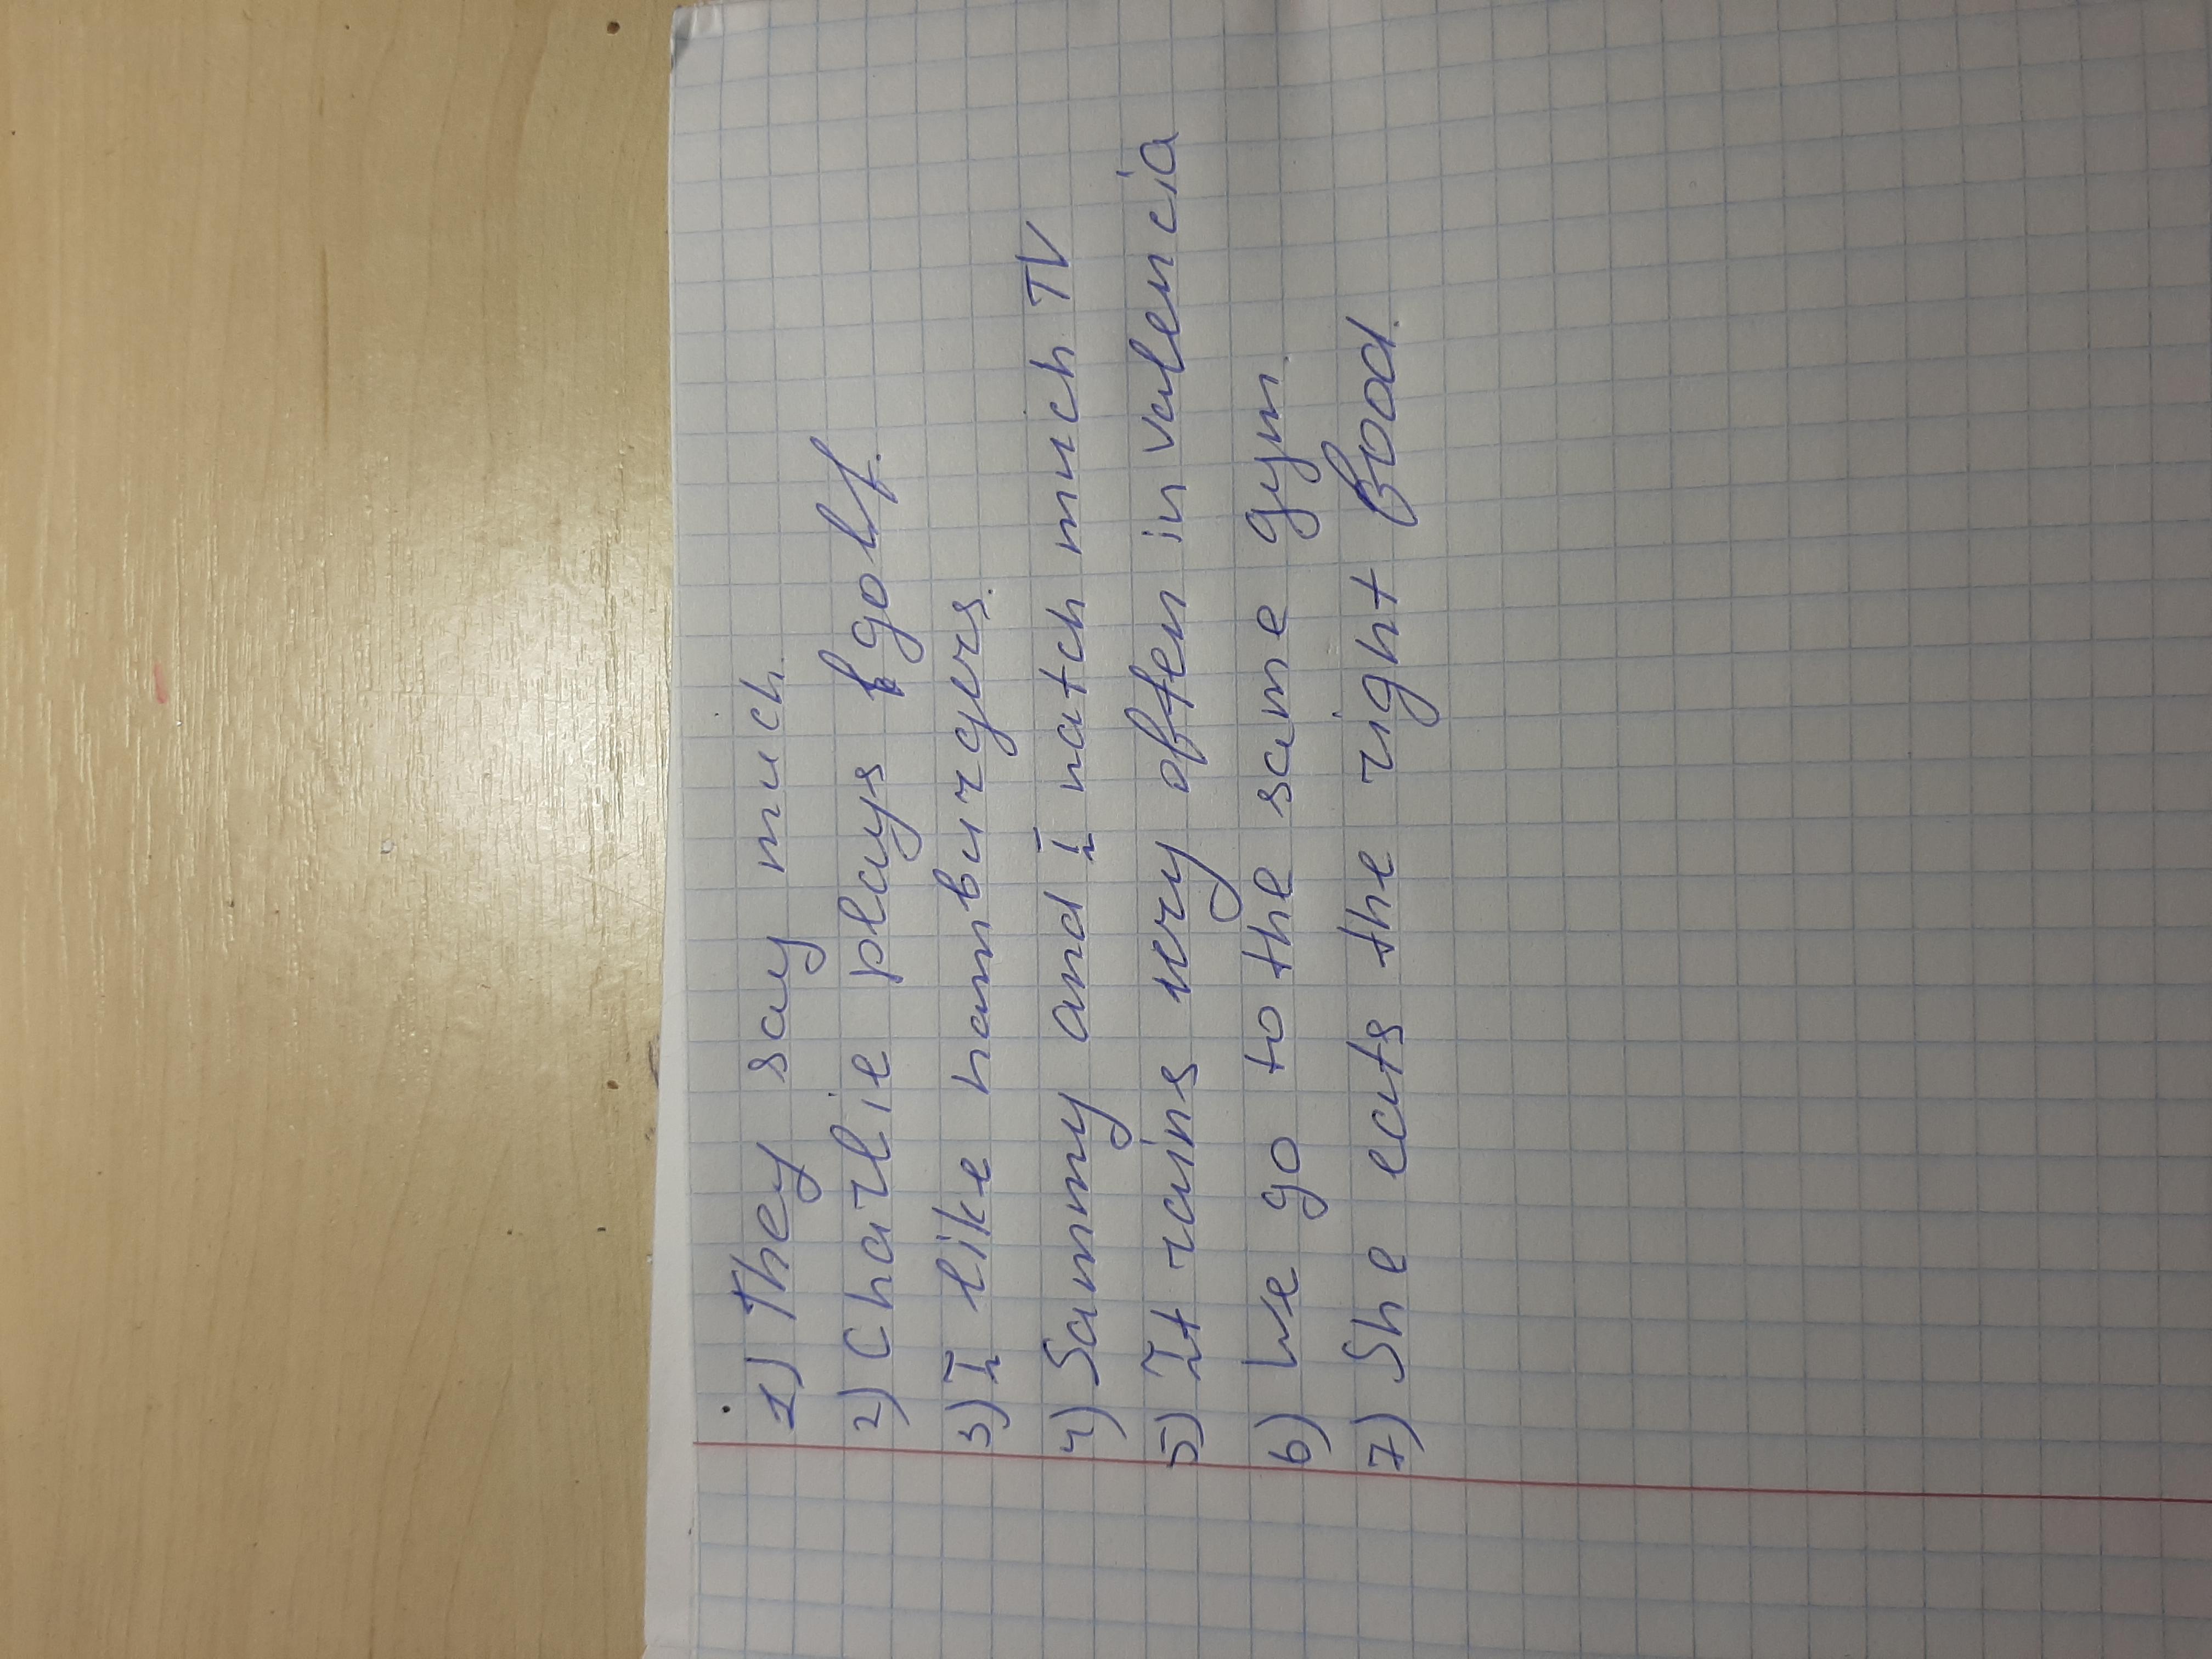 1) They say much.
2) Charlie plays golf.
3) I like hamburgers.
4) Sammy and I watch much TV
5) It rains very often in valencia
6) We go to the same gym.
7) She eats the right food.